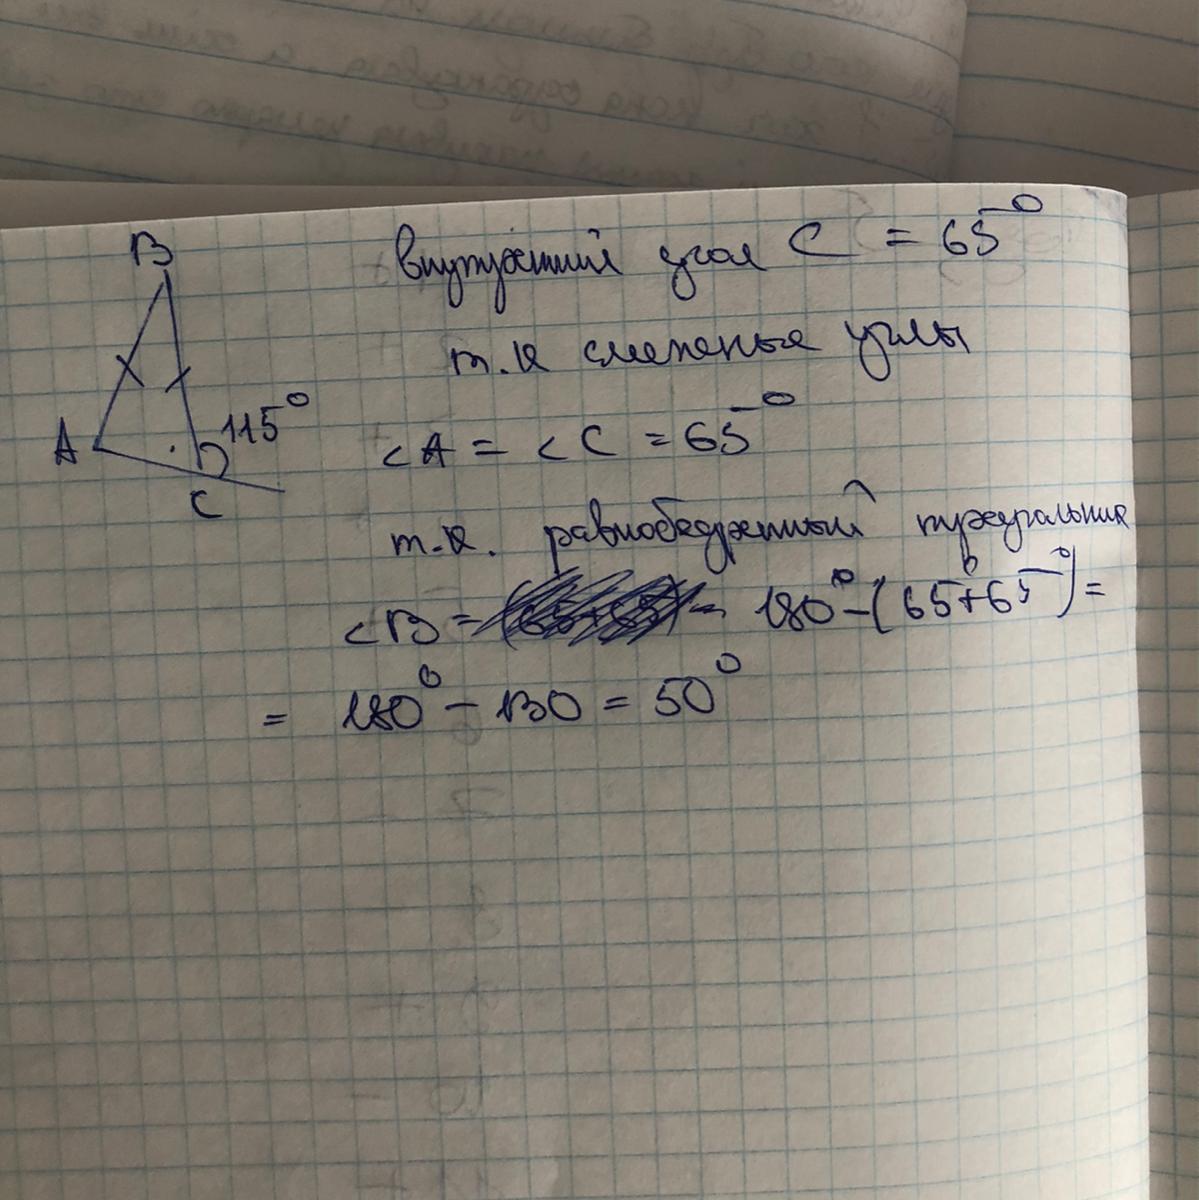 B
A
C
115°
внутрений угол C = 65°
т.к смеженые углы
∠A = ∠C = 65°
т.к. равнобедренный треугольник
∠B = 180° - (65° + 65°) =
= 180° - 130 = 50°